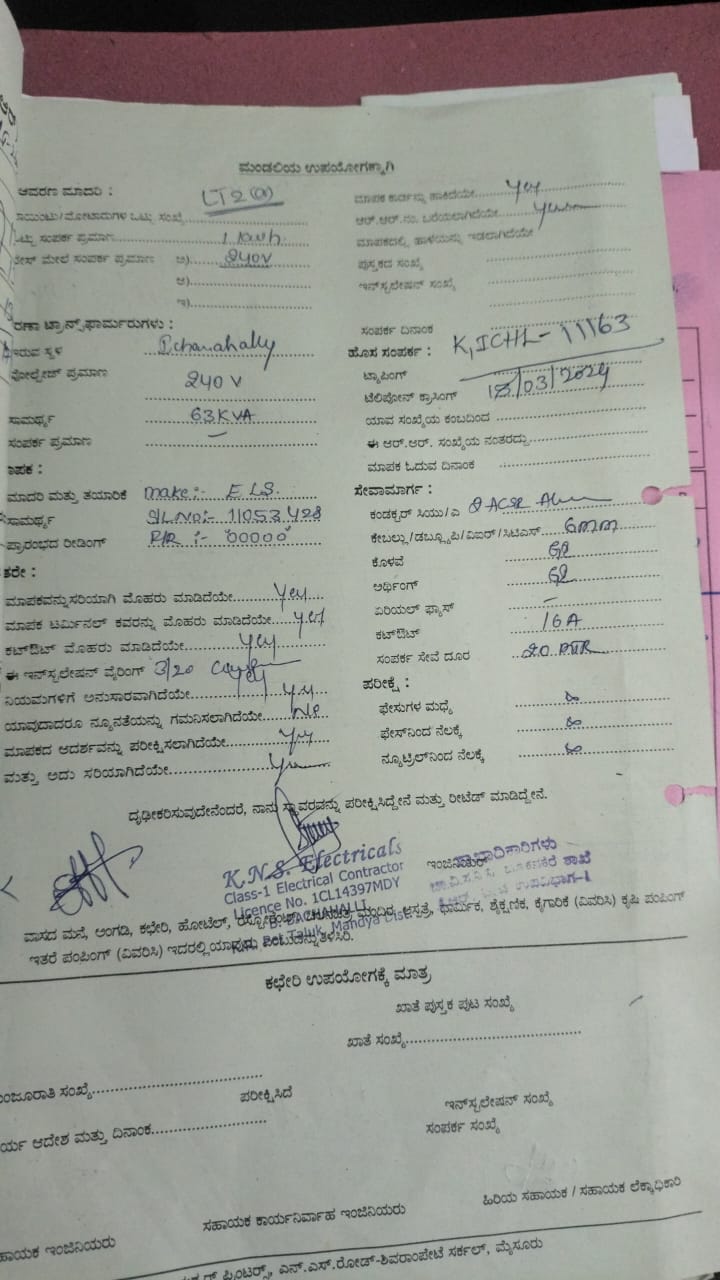 ಮಂಡಲಿಯ ಉಪಯೋಗಕ್ಕಾಗಿ
ಆವರಣ ಮಾದರಿ : LT2(a)
ಸಂಖ್ಯೆ
ಸಂಪರ್ಕ ಪ್ರಮಾಣ 1 kwh.
ಮೇಲೆ ಸಂಪರ್ಕ ಪ್ರಮಾಣ ಅ) 240V
ಆ)
ಇ)
ರಣಾ ಟ್ರಾನ್ಸ್‌ಫಾರ್ಮರುಗಳು :
ಇರುವ ಸ್ಥಳ I.chanahally
ವೋಲ್ಟೇಜ್ ಪ್ರಮಾಣ 240 V
ಸಾಮರ್ಥ್ಯ 63 KVA
ಸಂಪರ್ಕ ಪ್ರಮಾಣ –
ಾಪಕ :
ಮಾದರಿ ಮತ್ತು ತಯಾರಿಕೆ make:- ELS.
ಸಾಮರ್ಥ್ಯ SL.No:- 11053428
ಪ್ರಾರಂಭದ ರೀಡಿಂಗ್ :- 00000
ತರೇ :
ಮಾಪಕವನ್ನು ಸರಿಯಾಗಿ ಮೊಹರು ಮಾಡಿದೆಯೇ Yes
ಮಾಪಕ ಟರ್ಮಿನಲ್ ಕವರನ್ನು ಮೊಹರು ಮಾಡಿದೆಯೇ Yes
ಕಟ್‌ಔಟ್ ಮೊಹರು ಮಾಡಿದೆಯೇ Yes
ಈ ಇನ್‌ಸ್ಟಲೇಷನ್ ವೈರಿಂಗ್ 3/20
ನಿಯಮಗಳಿಗೆ ಅನುಸಾರವಾಗಿದೆಯೇ Yes
ಯಾವುದಾದರೂ ನ್ಯೂನತೆಯನ್ನು ಗಮನಿಸಲಾಗಿದೆಯೇ No
ಮಾಪಕದ ಆದರ್ಶವನ್ನು ಪರೀಕ್ಷಿಸಲಾಗಿದೆಯೇ Yes
ಮತ್ತು ಅದು ಸರಿಯಾಗಿದೆಯೇ Yes
ಮಾಪಕ ಕಾರ್ಡನ್ನು ಹಾಕಿದೆಯೇ Yes
ಆರ್.ಆರ್.ನಂ. ಬರೆಯಲಾಗಿದೆಯೇ Yes
ಮಾಪಕದಲ್ಲಿ ಹಾಳೆಯನ್ನು ಇಡಲಾಗಿದೆಯೇ
ಪುಸ್ತಕದ ಸಂಖ್ಯೆ
ಇನ್‌ಸ್ಟಲೇಷನ್ ಸಂಖ್ಯೆ
ಸಂಪರ್ಕ ದಿನಾಂಕ
ಹೊಸ ಸಂಪರ್ಕ : K,ICHL-11163
ಟ್ಯಾಪಿಂಗ್
ಟೆಲಿಫೋನ್ ಕ್ರಾಸಿಂಗ್ /03/2024
ಯಾವ ಸಂಖ್ಯೆಯ ಕಂಬದಿಂದ
ಈ ಆರ್.ಆರ್. ಸಂಖ್ಯೆಯ ನಂತರದ್ದು
ಮಾಪಕ ಓದುವ ದಿನಾಂಕ
ಸೇವಾಮಾರ್ಗ :
ಕಂಡಕ್ಟರ್ ಸಿಯು/ಎ ACSR
ಕೇಬಲ್ಲು/ಡಬ್ಲ್ಯೂಪಿ/ವಿಐಆರ್/ಸಿಟಿಎಸ್ 6mm
ಕೊಳವೆ GI
ಅರ್ಥಿಂಗ್ GI
ಏರಿಯಲ್ ಫ್ಯೂಸ್ –
ಕಟ್‌ಔಟ್ 16A
ಸಂಪರ್ಕ ಸೇವೆ ದೂರ 20 MTR
ಪರೀಕ್ಷೆ :
ಫೇಸುಗಳ ಮಧ್ಯೆ ∞
ಫೇಸ್‌ನಿಂದ ನೆಲಕ್ಕೆ ∞
ನ್ಯೂಟ್ರಲ್‌ನಿಂದ ನೆಲಕ್ಕೆ ∞
ದೃಢೀಕರಿಸುವುದೇನೆಂದರೆ, ನಾನು ಸ್ಥಾವರವನ್ನು ಪರೀಕ್ಷಿಸಿದ್ದೇನೆ ಮತ್ತು ರೀಟೆಡ್ ಮಾಡಿದ್ದೇನೆ.
K.N.S. Electricals
Class-1 Electrical Contractor
Licence No. 1CL14397MDY
Taluk, Mandya Dist.
ಇಂಜಿನಿಯರ್
ಶಾಖೆ
ಉಪವಿಭಾಗ-1
ವಾಸದ ಮನೆ, ಅಂಗಡಿ, ಕಛೇರಿ, ಹೋಟೆಲ್, ಮಂದಿರ, ಆಸ್ಪತ್ರೆ, ಧಾರ್ಮಿಕ, ಶೈಕ್ಷಣಿಕ, ಕೈಗಾರಿಕೆ (ವಿವರಿಸಿ) ಕೃಷಿ ಪಂಪಿಂಗ್
ಇತರೆ ಪಂಪಿಂಗ್ (ವಿವರಿಸಿ) ಇದರಲ್ಲಿ ತಿಳಿಸಿರಿ.
ಕಛೇರಿ ಉಪಯೋಗಕ್ಕೆ ಮಾತ್ರ
ಖಾತೆ ಪುಸ್ತಕ ಪುಟ ಸಂಖ್ಯೆ
ಖಾತೆ ಸಂಖ್ಯೆ
ಂಜೂರಾತಿ ಸಂಖ್ಯೆ
ಪರೀಕ್ಷಿಸಿದೆ
ಇನ್‌ಸ್ಟಲೇಷನ್ ಸಂಖ್ಯೆ
ರ್ಯ ಆದೇಶ ಮತ್ತು ದಿನಾಂಕ
ಸಂಪರ್ಕ ಸಂಖ್ಯೆ
ಹಾಯಕ ಇಂಜಿನಿಯರು ಸಹಾಯಕ ಕಾರ್ಯನಿರ್ವಾಹ ಇಂಜಿನಿಯರು ಹಿರಿಯ ಸಹಾಯಕ / ಸಹಾಯಕ ಲೆಕ್ಕಾಧಿಕಾರಿ
ಪ್ರಿಂಟರ್ಸ್, ಎನ್.ಎಸ್.ರೋಡ್-ಶಿವರಾಂಪೇಟೆ ಸರ್ಕಲ್, ಮೈಸೂರು